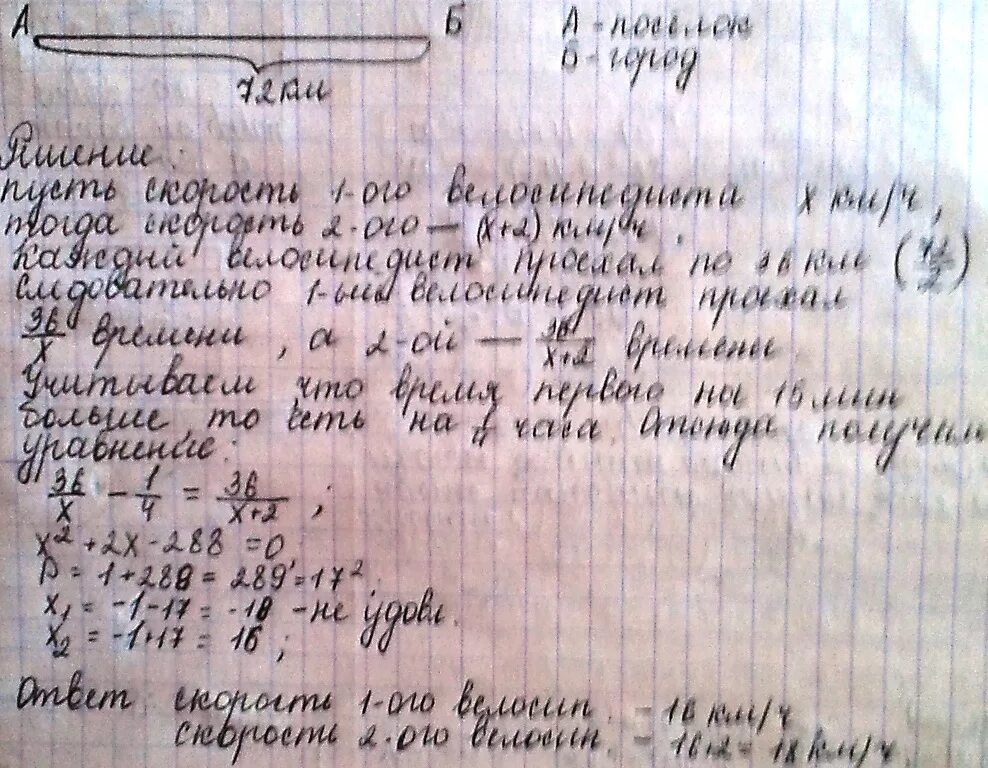 А Б А - посёлок
72 км Б - город
Решение:
пусть скорость 1-ого велосипедиста x км/ч,
тогда скорость 2-ого — (x+2) км/ч.
Каждый велосипедист проехал по 36 км (72/2)
следовательно 1-ый велосипедист проехал
36/x времени, а 2-ой — 36/x+2 времени
Учитываем что время первого на 15 мин
больше, то есть на 1/4 часа. Отсюда получим
уравнение:
36/x - 1/4 = 36/x+2 ;
x² + 2x - 288 = 0
D = 1 + 288 = 289 = 17²
x₁ = -1 - 17 = -18 - не удовл.
x₂ = -1 + 17 = 16 ;
Ответ: скорость 1-ого велосип. - 16 км/ч
скорость 2-ого велосип. - 16+2 = 18 км/ч.